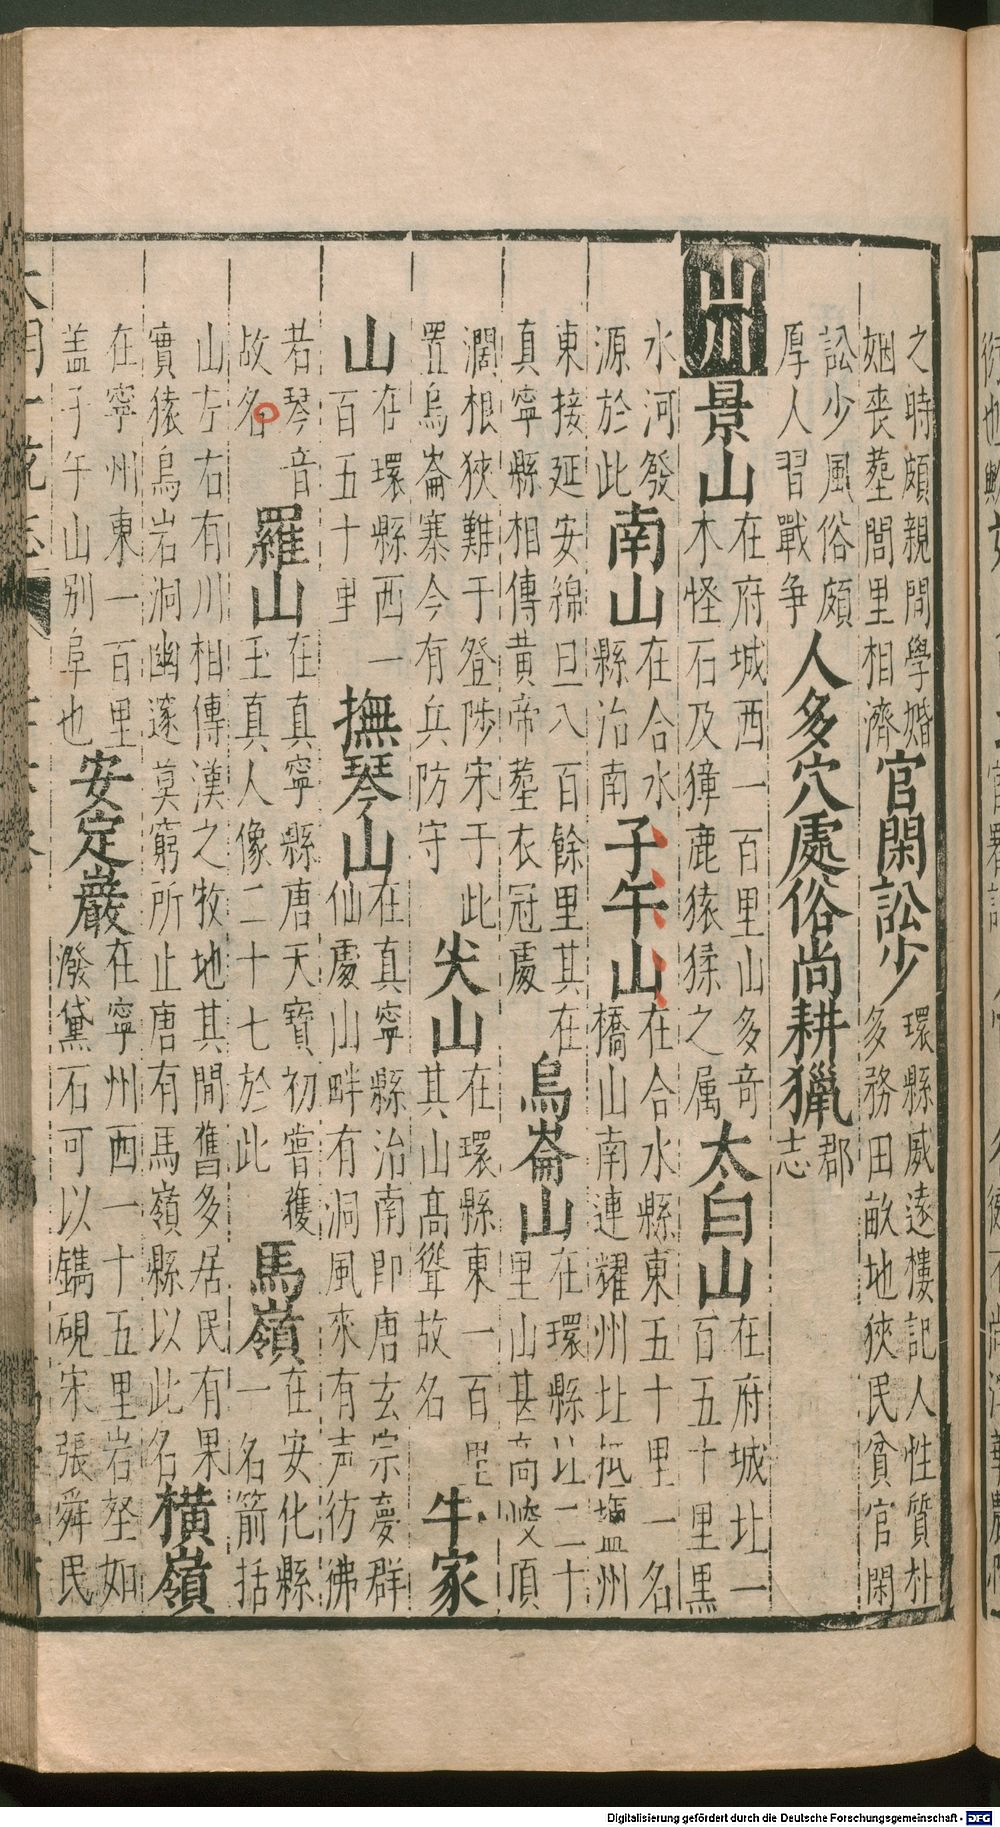 之時頗親閒學婚
姻丧塟閭里相濟
官閑訟少
環縣威遠樓記人性質朴
多務田畝地狹民貧官閑
訟少風俗頗
厚人習戰争
人多穴處俗尚耕獵
郡
志
山川
景山
在府城西一百里山多奇
木怪石及獐鹿猿猱之属
太白山
在府城北一
百五十里黒
水河發
源於此
南山
在合水
縣治南
子午山
在合水縣東五十里一名
橋山南連耀州北抵塩州
東接延安綿亘八百餘里其在
真寧縣相傳黄帝塟衣冠處
烏崙山
在環縣北二十
里山甚高峻頂
濶根狹難于登陟宋于此
置烏崙寨今有兵防守
尖山
在環縣東一百里
其山髙聳故名
牛家
山
在環縣西一
百五十里
撫琴山
在真寧縣治南即唐玄宗夢群
仙處山畔有洞風來有声彷彿
若琴音
故名
羅山
在真寧縣唐天寳初嘗獲
玉真人像二十七於此
馬嶺
在安化縣
一名箭括
山左右有川相傳漢之牧地其間舊多居民有果
實猿鳥岩洞幽邃莫窮所止唐有馬嶺縣以此名
橫嶺
在寧州東一百里
盖子午山别阜也
安定巖
在寧州西一十五里岩壑如
潑黛石可以鐫硯宋張舜民
Digitalisierung gefördert durch die Deutsche Forschungsgemeinschaft - DFG